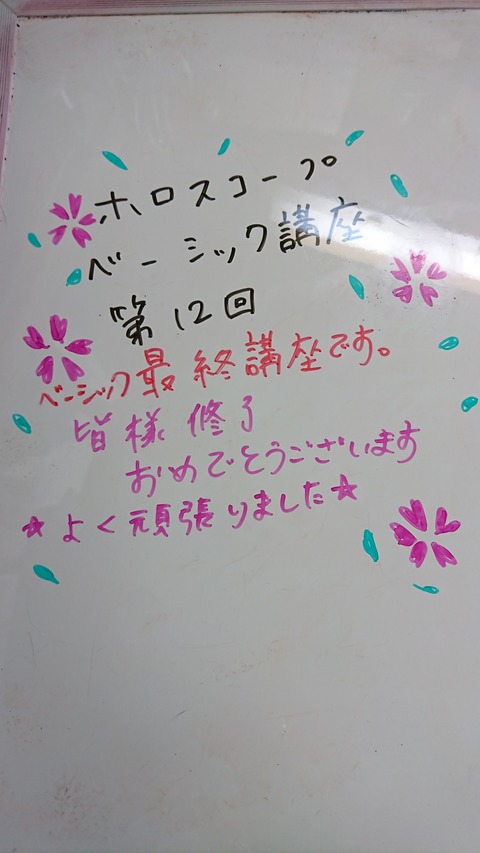 ホロスコープ
ベーシック講座
第12回
ベーシック最終講座です。
皆様修了
おめでとうございます
★よく頑張りました★